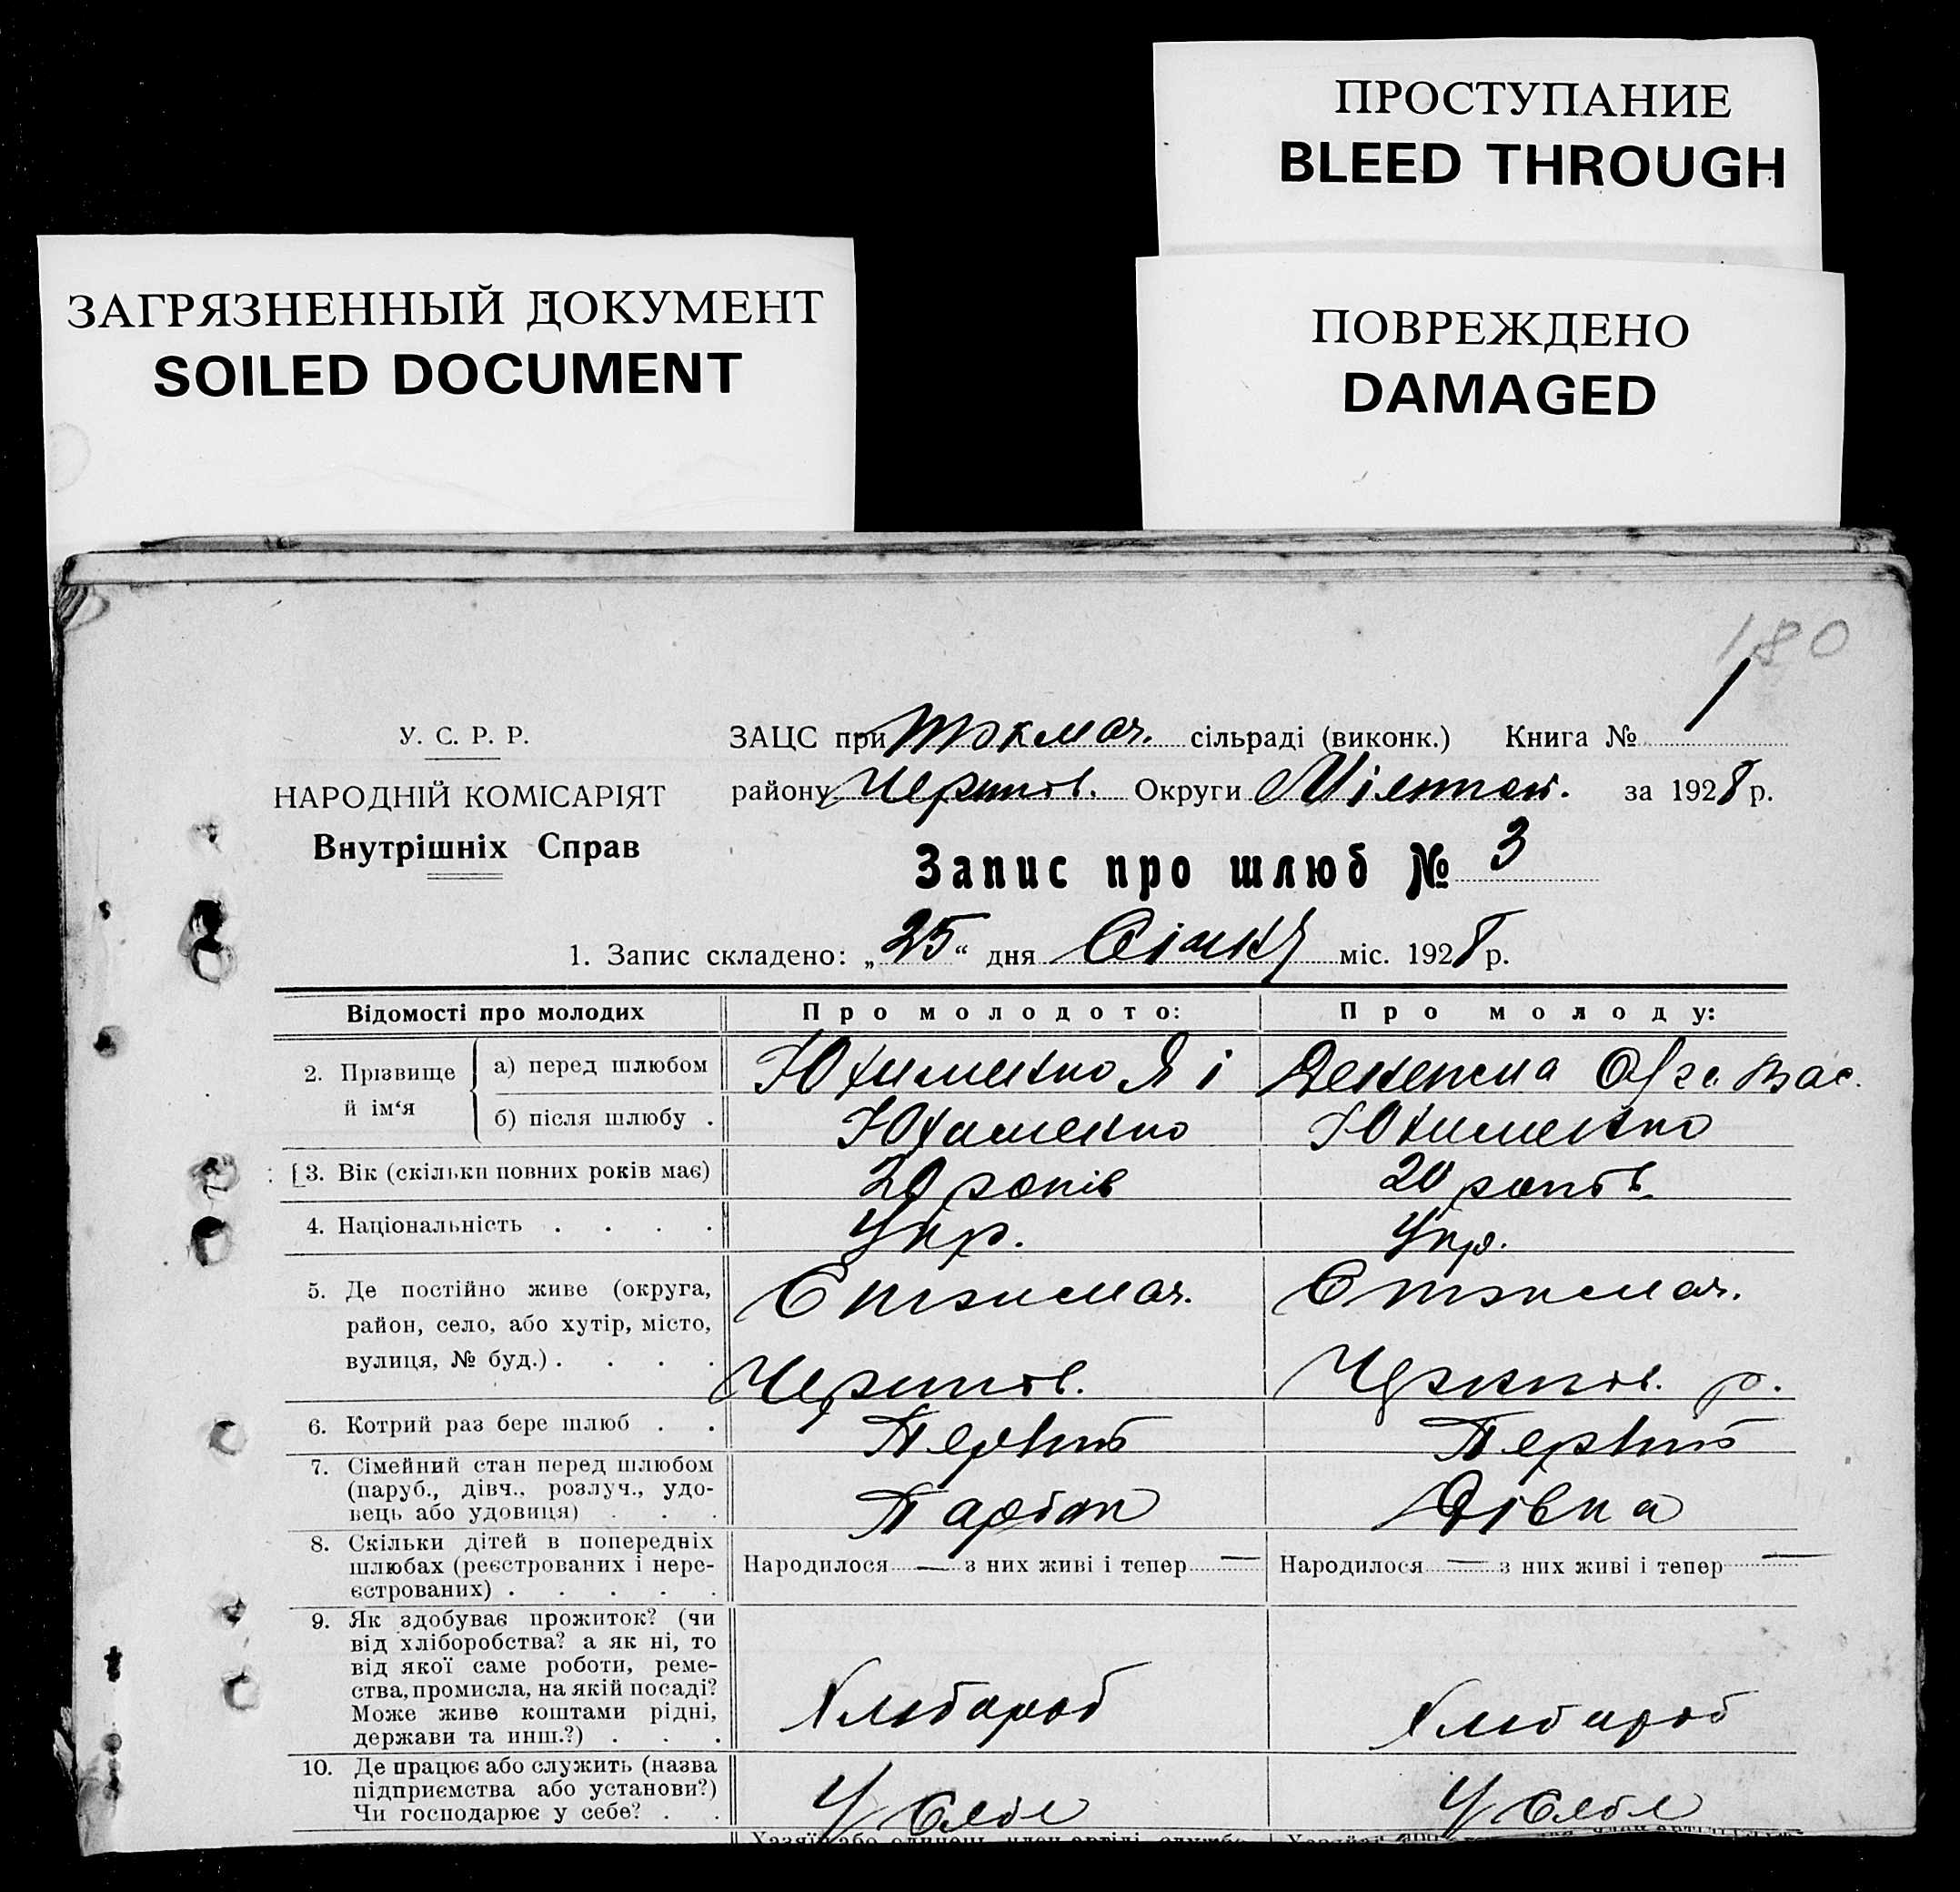 ПРОСТУПАНИЕ
BLEED THROUGH
ЗАГРЯЗНЕННЫЙ ДОКУМЕНТ
SOILED DOCUMENT
ПОВРЕЖДЕНО
DAMAGED
180
У. С. Р. Р.
НАРОДНІЙ КОМІСАРІЯТ
Внутрішніх Справ
ЗАЦС при сільраді (виконк.) Книга № 1
району Округи за 1928 р.
Запис про шлюб № 3
1. Запис складено: „25“ дня Січня міс. 1928 р.
Відомості про молодих
Про молодого:
Про молоду:
2. Прізвище й ім‘я
а) перед шлюбом
Юхименко Я і
Вас.
б) після шлюбу .
Юхименко
Юхименко
3. Вік (скільки повних років має)
20 років
20 років
4. Національність . . . .
Укр.
Укр.
5. Де постійно живе (округа,
район, село, або хутір, місто,
вулиця, № буд.) . . . .
р.
6. Котрий раз бере шлюб . .
Первий
Первий
7. Сімейний стан перед шлюбом
(паруб., дівч., розлуч., удо-
вець або удовиця) . . .
Парбок
Дівка
8. Скільки дітей в попередніх
шлюбах (реєстрованих і нере-
єстрованих) . . . . .
Народилося — з них живі і тепер —
Народилося — з них живі і тепер —
9. Як здобуває прожиток? (чи
від хліборобства? а як ні, то
від якої саме роботи, реме-
ства, промисла, на якій посаді?
Може живе коштами рідні,
держави та инш.?) . . .
Хлібороб
Хлібороб
10. Де працює або служить (назва
підприємства або установи?)
Чи господарює у себе? . .
У себе
У себе